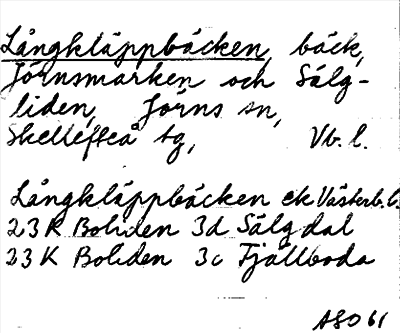 Långkläppbäcken, bäck,
Jörnsmarken och Sälg-
liden, Jörns sn,
Skellefteå tg, Vb. l.
Långkläppbäcken ek Västerb. l.
23 K Boliden 3d Sälgdal
23 K Boliden 3c Fjällboda
ASO 61